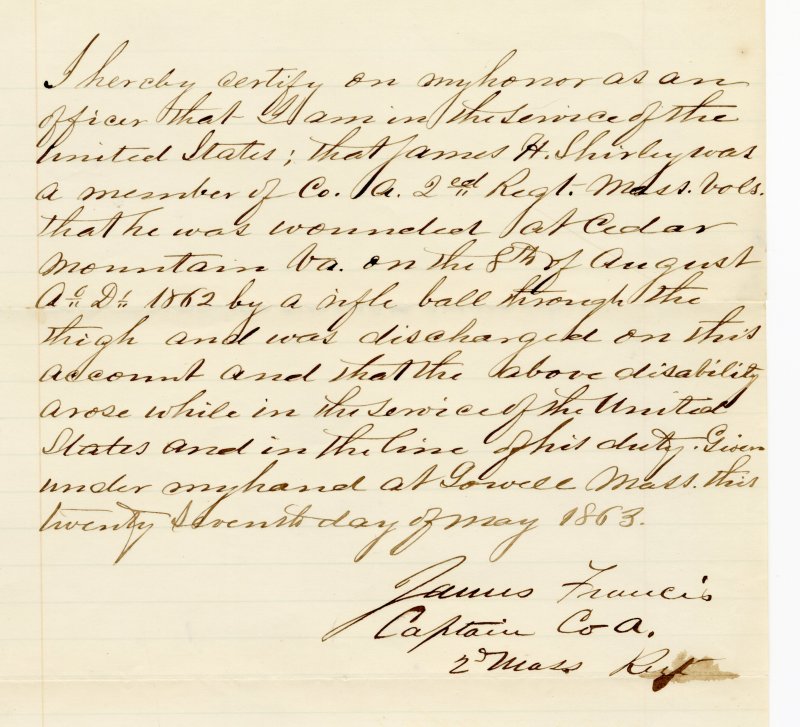 I hereby certify on my honor as an
officer that I am in the service of the
United States; that James H. Shirley was
a member of Co. A. 2ed Regt. Mass. Vols.
that he was wounded at Cedar
Mountain Va. on the 8th of August
Ao. Di. 1862 by a rifle ball through the
thigh and was discharged on this
account and that the above disability
arose while in the service of the United
States and in the line of his duty. Given
under my hand at Lowell Mass. this
twenty seventh day of May 1863.
James Francis
Captain Co A.
2d Mass Regt